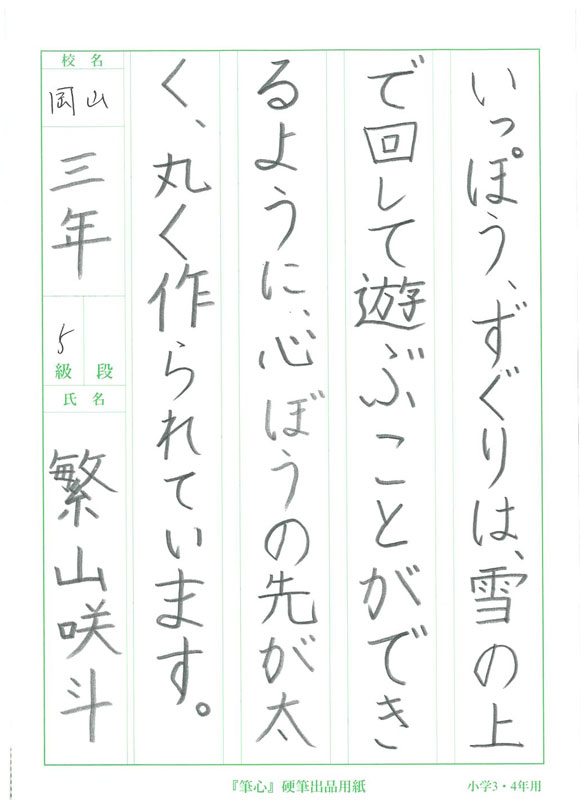 いっぽう、ずぐりは、雪の上
で回して遊ぶことができ
るように、心ぼうの先が太
く、丸く作られています。
校名
岡山
三年
5
級 段
氏名
繁山咲斗
『筆心』硬筆出品用紙
小学3・4年用